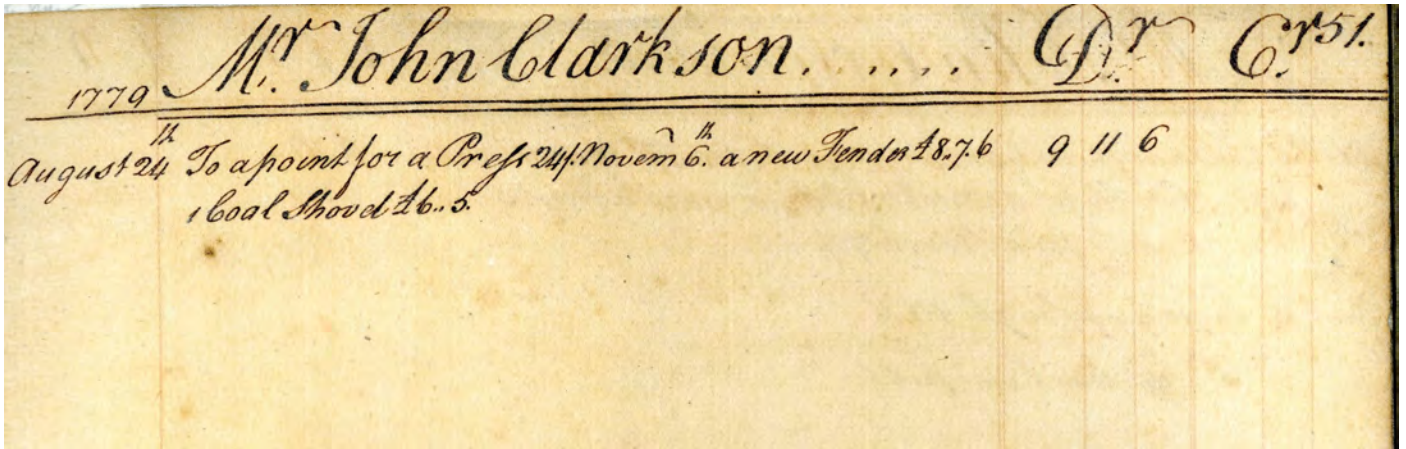 Mr. John Clarkson. . . . . . Dr. Cr. 51.
1779
August 24th To a point for a Press 24/. Novem 6.th a new Fender £8.7.6 9 11 6
1 Coal Shovel £6..5.